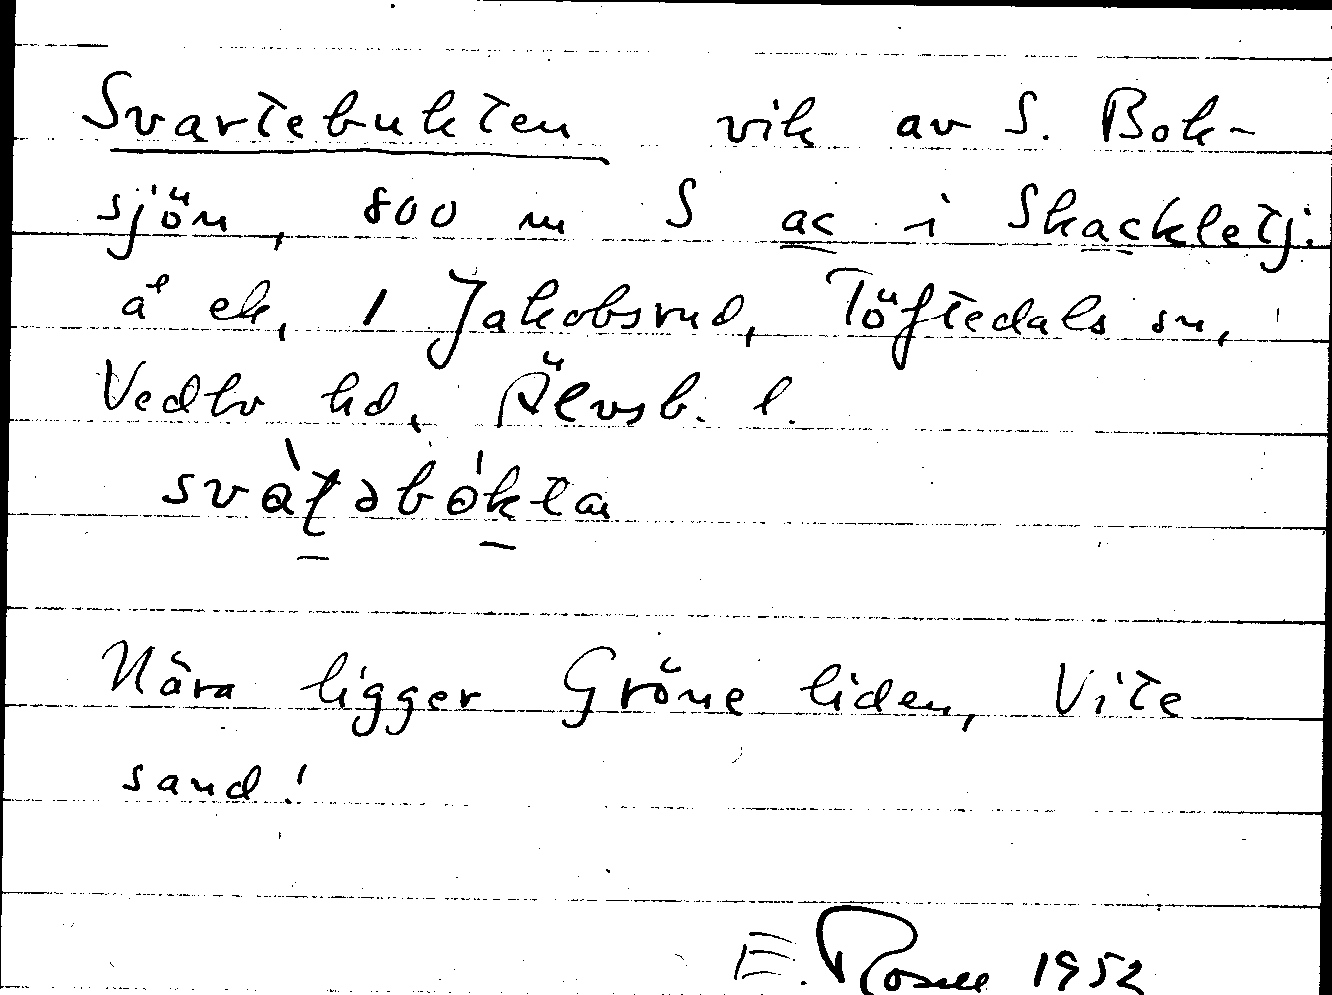 Svartebukten vik av S. Bok-
sjön, 800 m S ac i Skackletj.
å ek, 1 Jakobsrud, Töftedals sn,
Vedbo hd, Älvsb. l.
Nära ligger Gröne liden, Vite
sand!
E. Rosell 1952